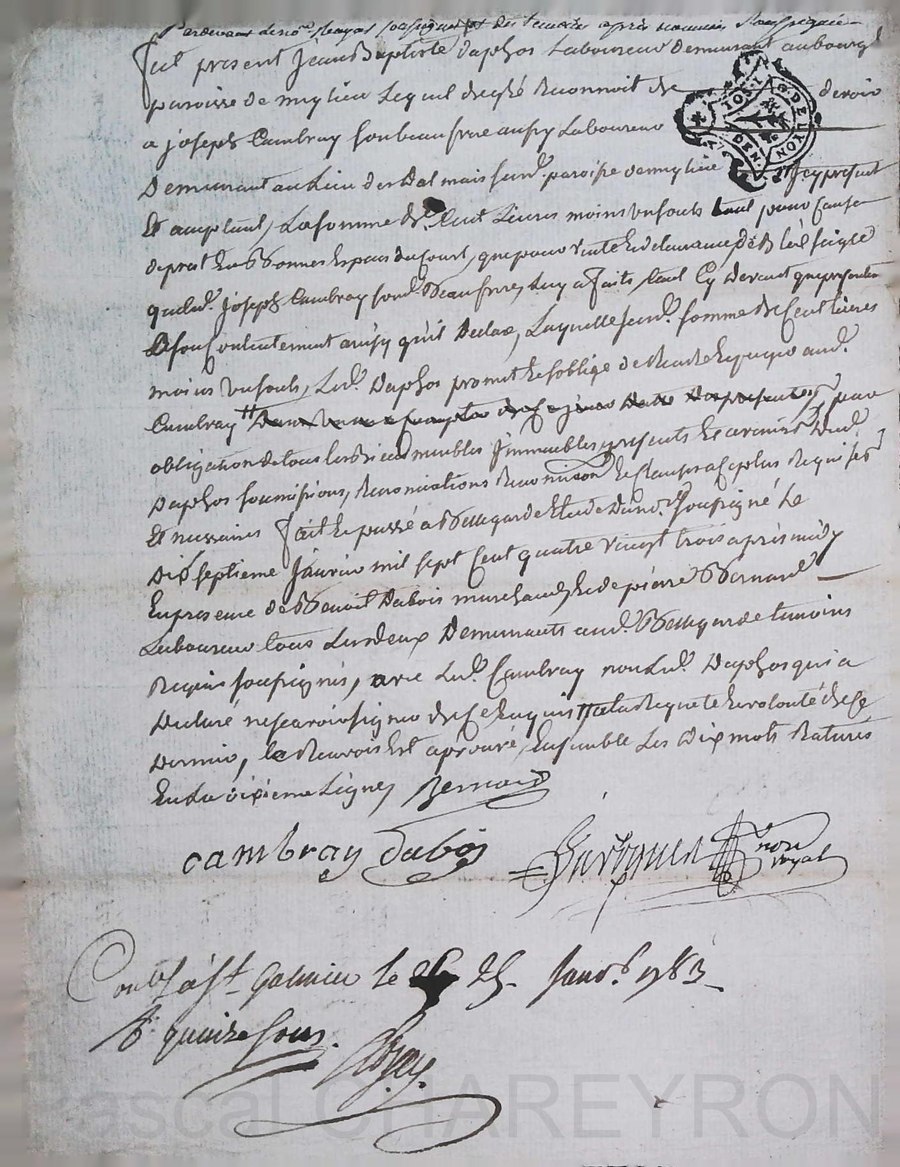 Pardevant le no.re Royal soussigné et des temoins après nommés
fut present Jean Baptiste Daphos Laboureur demeurant au bourg
paroisse de mizérieu Lequel de gré Reconnoit devoir
a joseph Cambray son beau frere aussy Laboureur
Demeurant au Lieu des paroisse de
Et acceptant, La somme de Cent Livres moins un sould tant pour cause
de prest En Bonnes Especes du Court, que pour vente Et delivrance de Bled seigle
que led. joseph Cambray son d. Beau frere, Luy a faits, tant Cy Devant que presentement
a son Contentement ainsy qu'il Declare, Laquelle susd. somme de Cent livres
moins un sould, Led. Daphos promet Et s'oblige de Rendre Et payer aud.
Cambray pour
obligation de tous les Biens meubles immeubles presents Et avenir Dud.
Daphos soumissions, Renonciations Et Clauses a ce plus Requises
Et necessaires fait Et passé a Bellegarde Etude Dud. no.re soussigné Le
Dix septieme Janvier mil sept Cent quatre vingt trois après midy
En presence de Benoit Dubois marchand Et de pierre Bernard
Laboureur tous Les deux Demeurants aud. Bellegarde temoins
Requis soussignés, avec Led. Cambray non Led. Daphos qui a
Declaré ne sçavoir signer de ce Enquis # a la Requete Et volonté de ce
Dernier, le Renvois Est aprouvé, Ensemble Les Dix mots Raturés
En La dixieme Ligne, Bernard
cambray Dubois
no.re royal
Conllé à St. Galmier le 25 Janv. 1783
R. quinze sous.
G. DE LYON
Pascal CHAREYRON